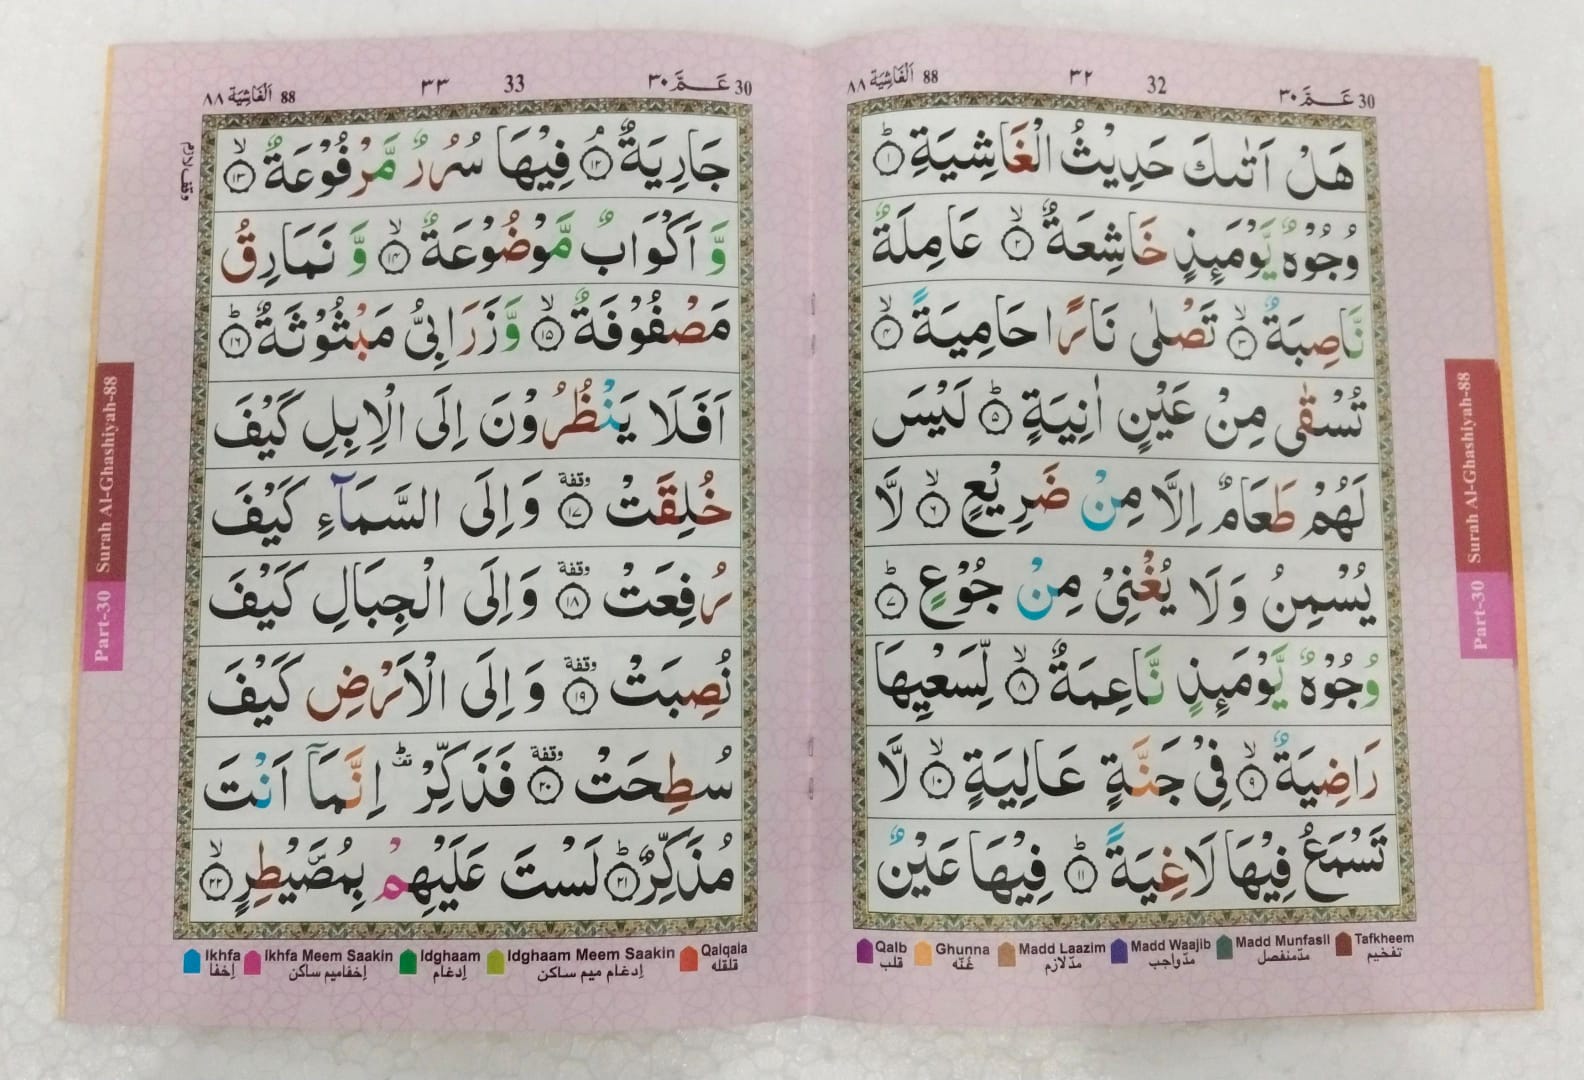 ٨٨ اَلْغَاشِيَة 88
٣٢ 32
عَـمَّ ٣٠ 30
هَلْ اَتٰىكَ حَدِيْثُ الْغَاشِيَةِ ۝١ؕ
وُجُوْهٌ يَّوْمَىِٕذٍ خَاشِعَةٌ ۝٢ۙ عَامِلَةٌ
نَّاصِبَةٌ ۝٣ۙ تَصْلٰى نَارًا حَامِيَةً ۝٤ۙ
تُسْقٰى مِنْ عَيْنٍ اٰنِيَةٍ ۝٥ؕ لَيْسَ
لَهُمْ طَعَامٌ اِلَّا مِنْ ضَرِيْعٍ ۝٦ۙ لَّا
يُسْمِنُ وَلَا يُغْنِيْ مِنْ جُوْعٍ ۝٧ؕ
وُجُوْهٌ يَّوْمَىِٕذٍ نَّاعِمَةٌ ۝٨ۙ لِّسَعْيِهَا
رَاضِيَةٌ ۝٩ۙ فِيْ جَنَّةٍ عَالِيَةٍ ۝١٠ۙ لَّا
تَسْمَعُ فِيْهَا لَاغِيَةً ۝١١ؕ فِيْهَا عَيْنٌ
Qalb قلب
Ghunna غُنّه
Madd Laazim مدّ لازم
Madd Waajib مدّ واجب
Madd Munfasil مدّ منفصل
Tafkheem تفخيم
Surah Al-Ghashiyah-88
Part-30
٨٨ اَلْغَاشِيَة 88
٣٣ 33
عَـمَّ ٣٠ 30
جَارِيَةٌ ۝١٢ۘ فِيْهَا سُرُرٌ مَّرْفُوْعَةٌ ۝١٣ۙ
وقف لازم
وَّ اَكْوَابٌ مَّوْضُوْعَةٌ ۝١٤ۙ وَّ نَمَارِقُ
مَصْفُوْفَةٌ ۝١٥ۙ وَّ زَرَابِيُّ مَبْثُوْثَةٌ ۝١٦ؕ
اَفَلَا يَنْظُرُوْنَ اِلَى الْاِبِلِ كَيْفَ
خُلِقَتْ ۝١٧ وقفة وَ اِلَى السَّمَآءِ كَيْفَ
رُفِعَتْ ۝١٨ وقفة وَ اِلَى الْجِبَالِ كَيْفَ
نُصِبَتْ ۝١٩ وقفة وَ اِلَى الْاَرْضِ كَيْفَ
سُطِحَتْ ۝٢٠ وقفة فَذَكِّرْ ؕ اِنَّمَاۤ اَنْتَ
مُذَكِّرٌ ۝٢١ؕ لَسْتَ عَلَيْهِمْ بِمُصَۜيْطِرٍ ۝٢٢ۙ
Ikhfa إخفا
Ikhfa Meem Saakin إخفا ميم ساكن
Idgham إدغام
Idgham Meem Saakin إدغام ميم ساكن
Qalqala قلقله
Surah Al-Ghashiyah-88
Part-30